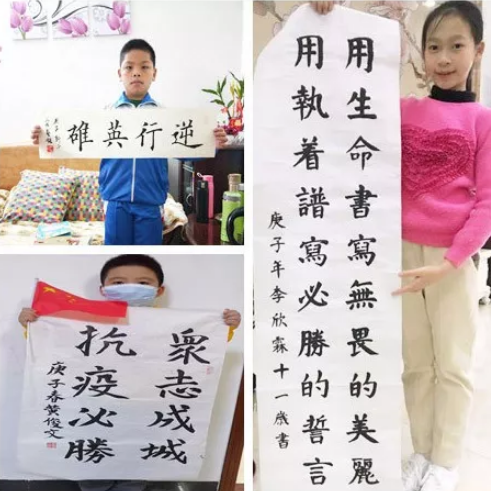 逆行英雄
眾志成城
抗疫必勝
庚子春黄俊文
用生命書寫無畏的美麗
用執着譜寫必勝的誓言
庚子年李欣霖十一歲書